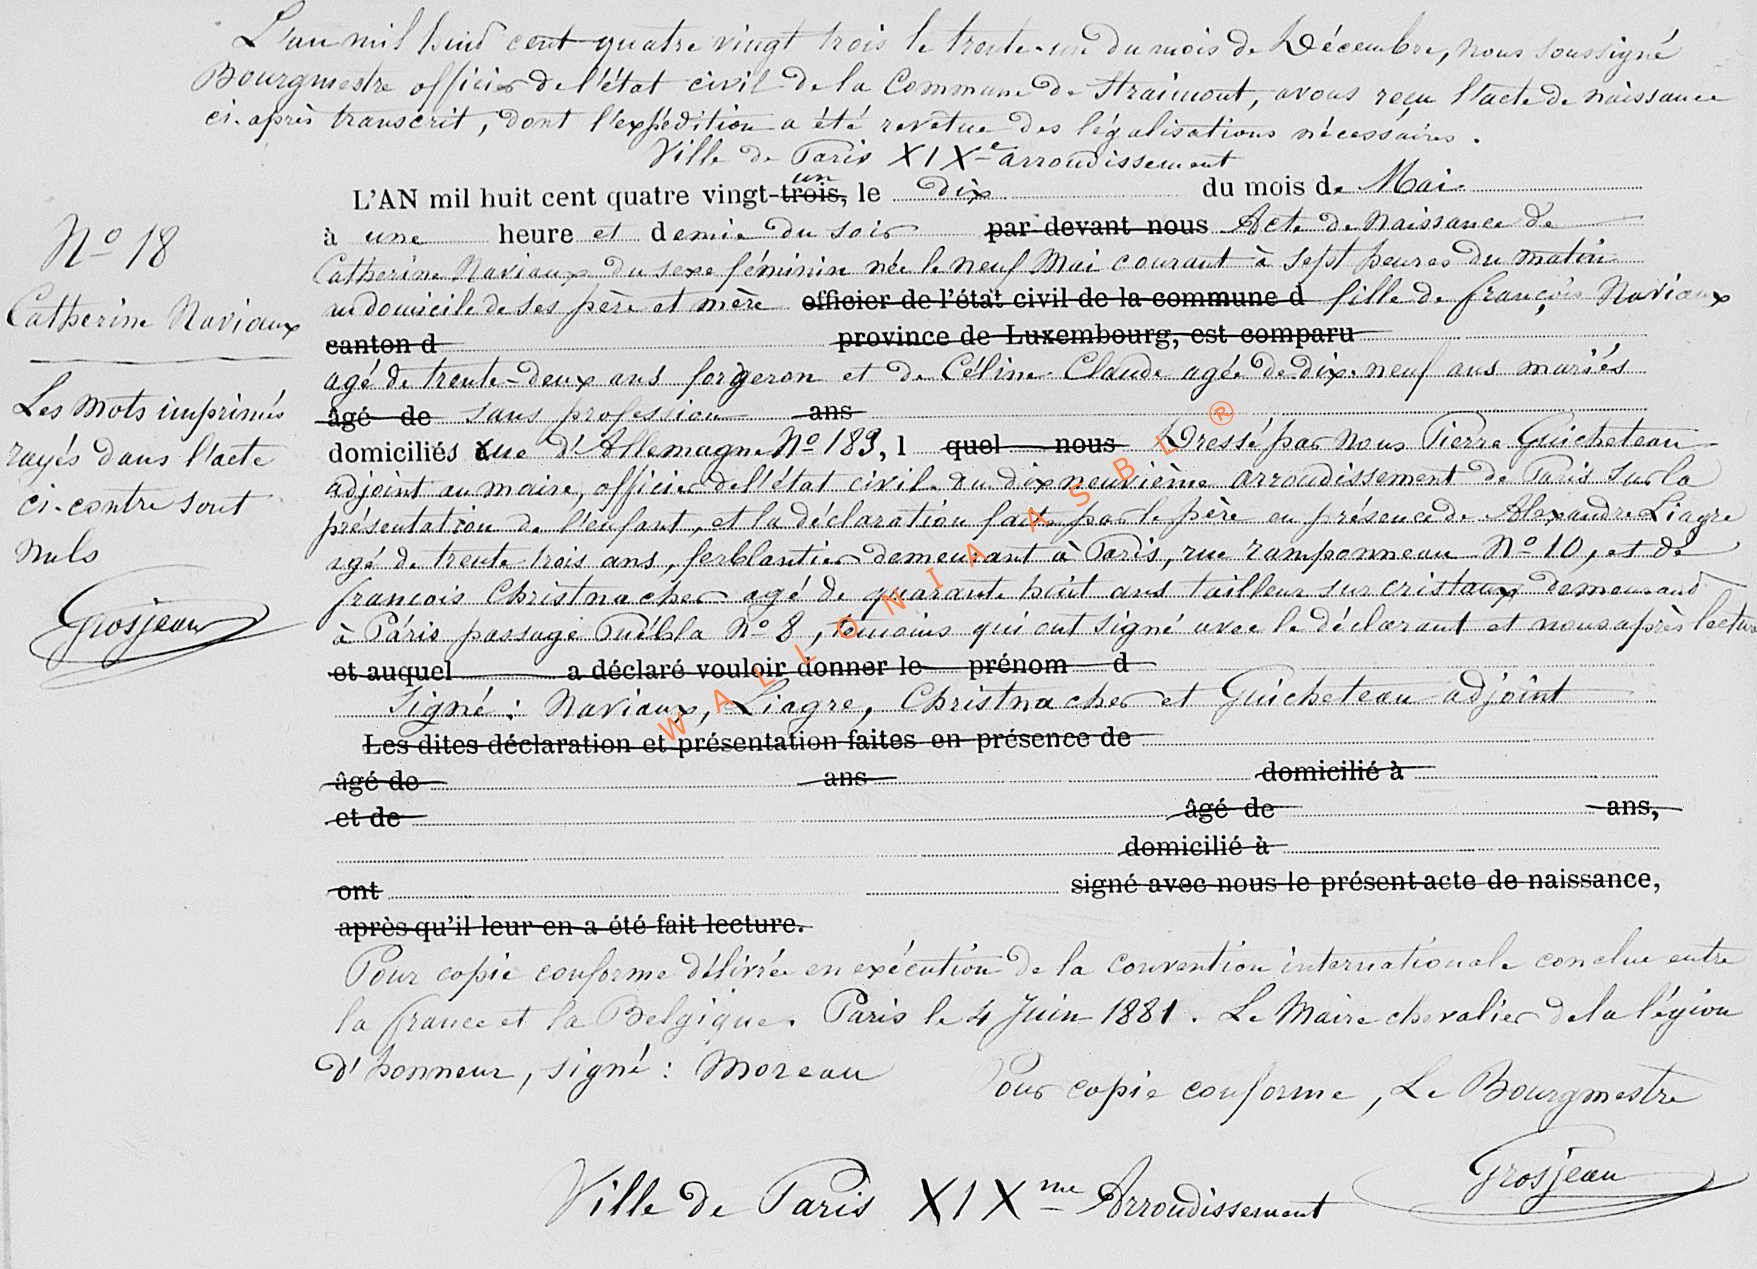 L'an mil huit cent quatre vingt trois le trente-un du mois de Décembre, nous soussigné
Bourgmestre officier de l'état civil de la Commune de Straimont, avons reçu l'acte de naissance
ci-après transcrit, dont l'expédition a été revetue des légalisations nécessaires.
Ville de Paris XIXe arrondissement
un
L'AN mil huit cent quatre vingt-trois, le dix du mois de Mai
à une heure et demie du soir par-devant nous Acte de Naissance de
Catherine Naviaux du sexe féminin née le neuf Mai courant à sept heures du matin
au domicile de ses père et mère officier de l'état civil de la commune d fille de françois Naviaux
canton d province de Luxembourg, est comparu
agé de trente-deux ans forgeron et de Céline Claude agée de dix-neuf ans mariés
âgé de sans profession ans
domiciliés rue d'Allemagne No 183, l quel nous Dressé par Nous Pierre Guicheteau
adjoint au maire, officier de l'état civil du dix neuvième arrondissement de Paris sur la
présentation de l'enfant, et la déclaration faite par le père en présence de Alexandre Liagre
agé de trente trois ans, ferblantier demeurant à Paris, rue ramponneau No 10, et de
francois Christnacher agé de quarante huit ans tailleur sur cristaux demeurant
à Paris passage Puébla No 8, témoins qui ont signé avec le déclarant et nous après lecture
et auquel a déclaré vouloir donner le prénom d
Signé: Naviaux, Liagre, Christnacher et Guicheteau adjoint
Les dites déclaration et présentation faites en présence de
âgé de ans domicilié à
et de âgé de ans,
domicilié à
ont signé avec nous le présent acte de naissance,
après qu'il leur en a été fait lecture.
Pour copie conforme délivrée en exécution de la convention internationale conclue entre
la france et la Belgique. Paris le 4 Juin 1881. Le Maire chevalier de la légion
d'honneur, signé: Moreau
Pour copie conforme, Le Bourgmestre
Grosjean
Ville de Paris XIXme Arrondissement
No 18
Catherine Naviaux
Les mots imprimés
rayés dans l'acte
ci-contre sont
nuls
Grosjean
WALLONIA ASBL ®